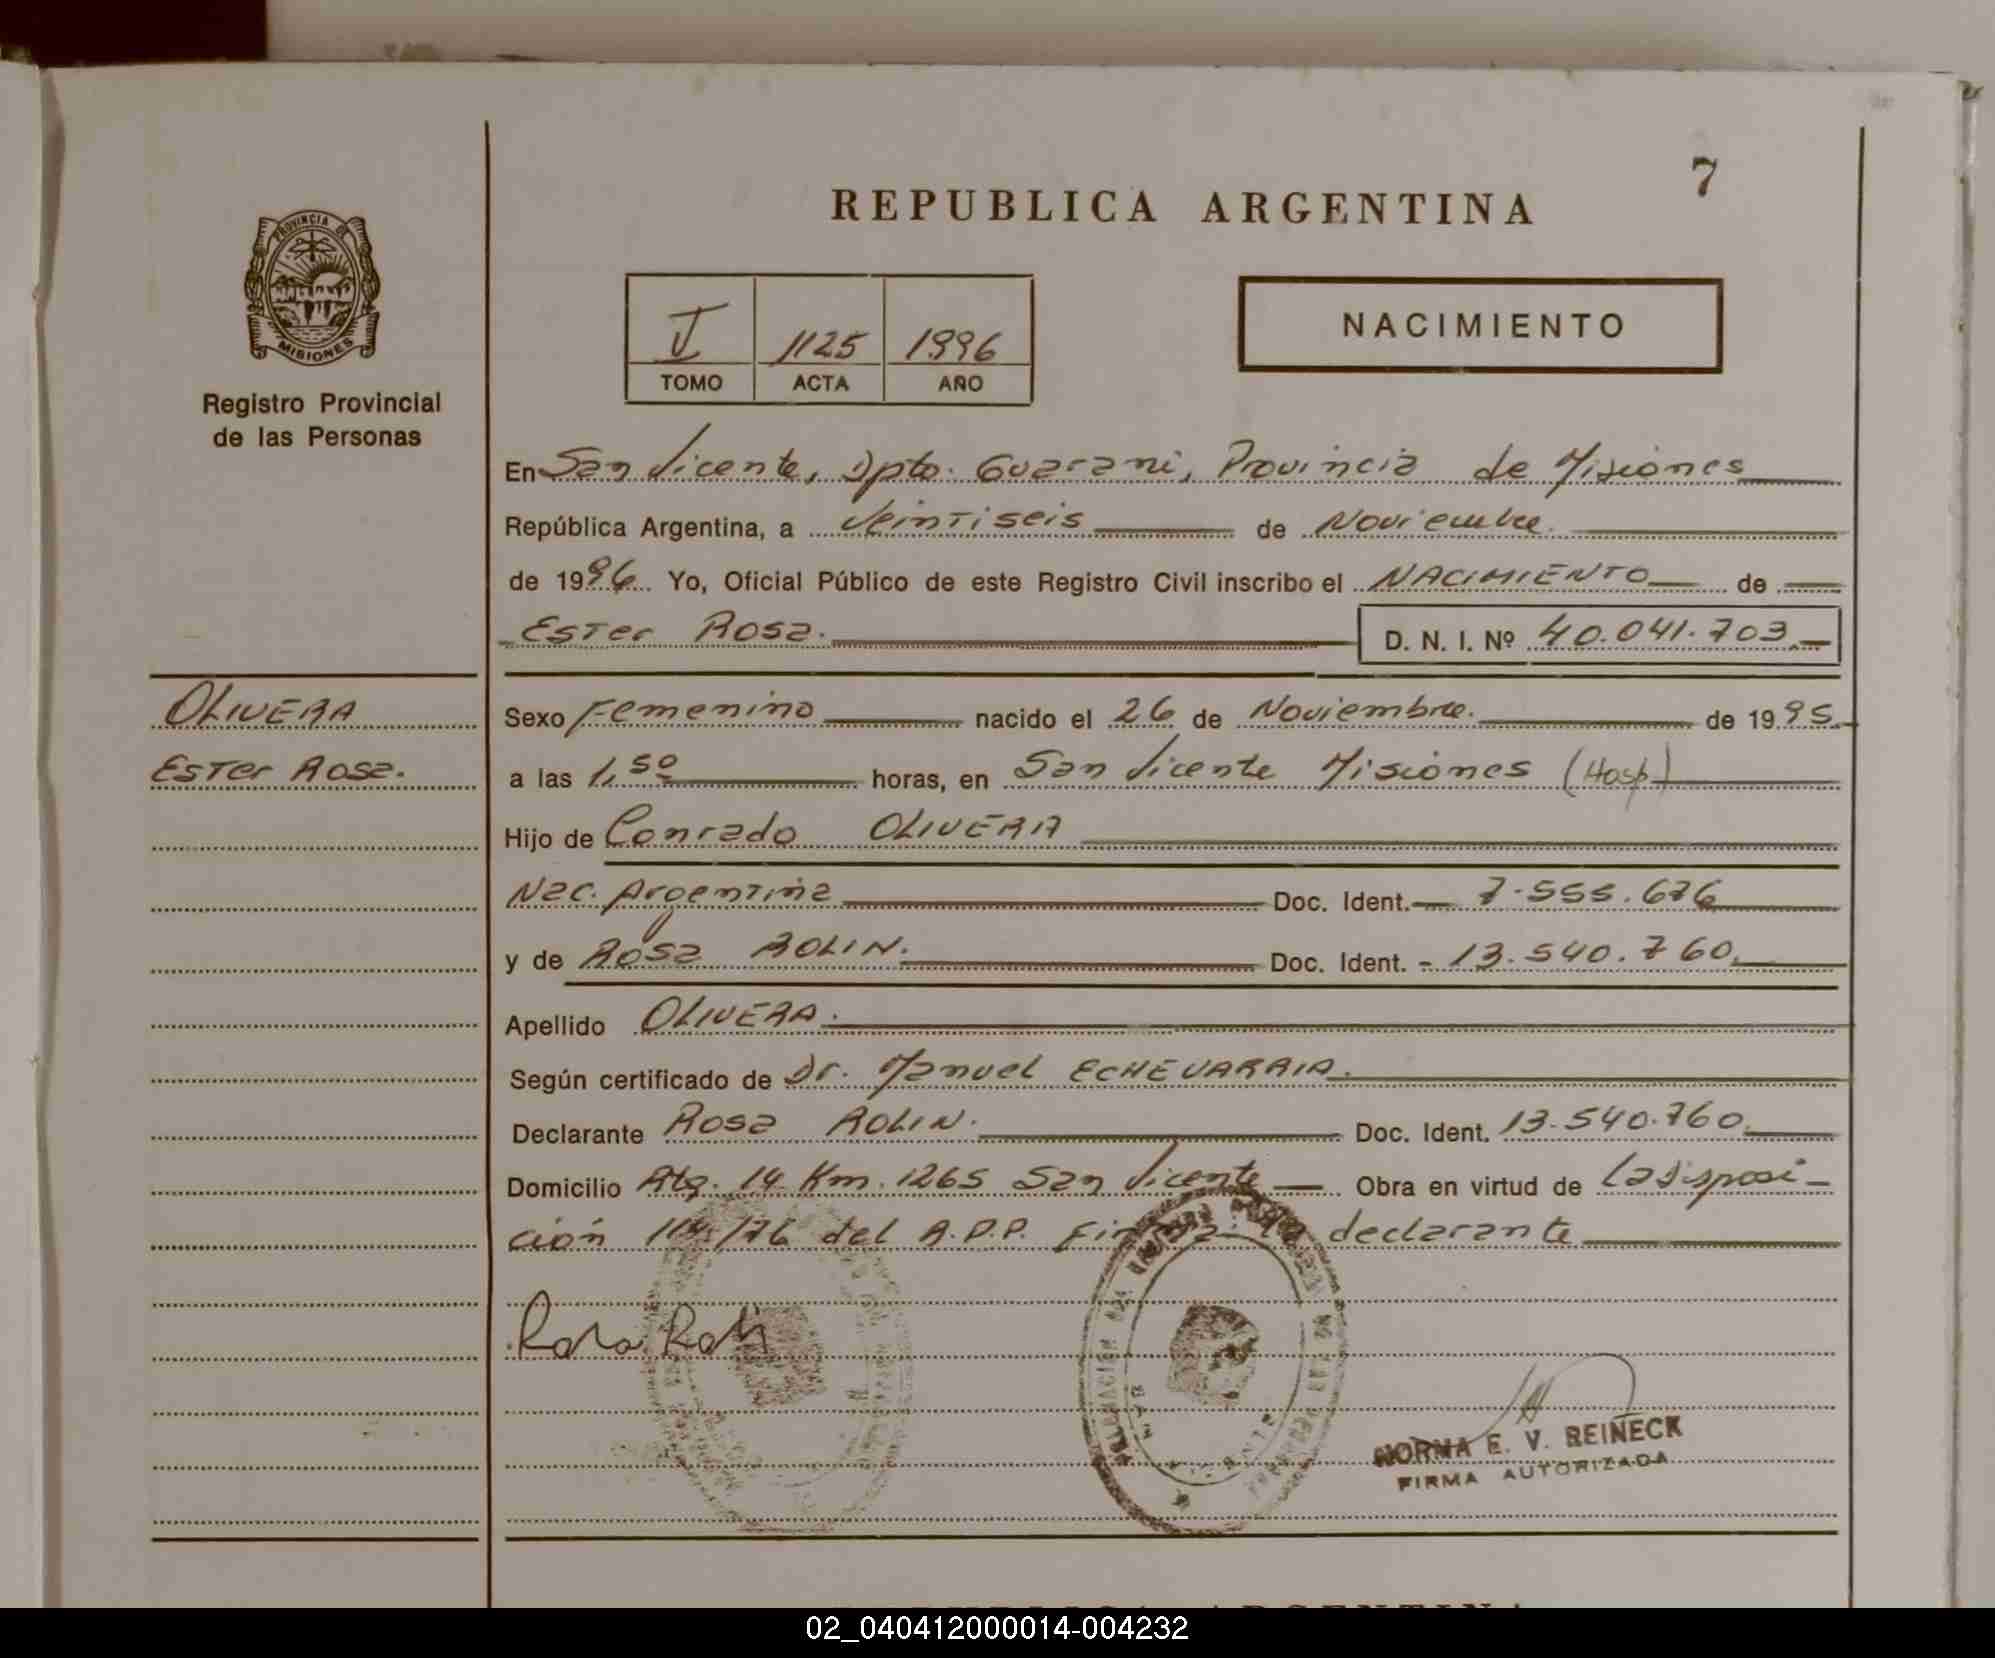 7
REPUBLICA ARGENTINA
PROVINCIA DE
MISIONES
Registro Provincial
de las Personas
1125 1996
TOMO ACTA AÑO
NACIMIENTO
En San Vicente, Dpto. Guarani, Provincia de Misiones
República Argentina, a Veintiseis de Noviembre.
de 1996 Yo, Oficial Público de este Registro Civil inscribo el NACIMIENTO de
Ester Rosa. D. N. I. Nº 40.041.703.
OLIVERA
Ester Rosa.
Sexo Femenino nacido el 26 de Noviembre. de 1995
a las 1,50 horas, en San Vicente Misiones (Hosp.)
Hijo de Conrado OLIVERA
Nac. Argentina Doc. Ident. 7.555.676
y de Rosa ROLIN. Doc. Ident. - 13.540.760.
Apellido OLIVERA.
Según certificado de Dr. Manuel ECHEVARRIA.
Declarante Rosa ROLIN. Doc. Ident. 13.540.760.
Domicilio Rta. 14 Km. 1265 San Vicente Obra en virtud de La disposi-
ción /76 del A.P.P. Firma: la declarante
Rosa Roli
SAN VICENTE
NORMA E. V. REINECK
FIRMA AUTORIZADA
REPUBLICA ARGENTINA
02_040412000014-004232